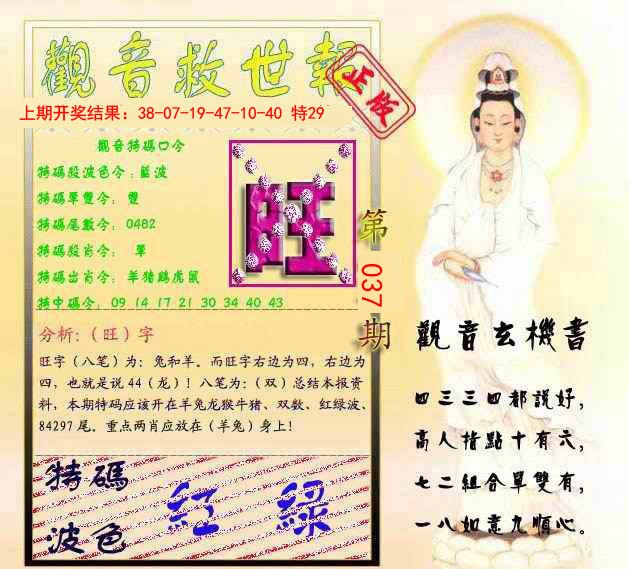 觀音救世報
正版
上期开奖结果：38-07-19-47-10-40 特29
觀音特碼口令
特碼殺波色令：藍波
特碼單雙令： 雙
特碼尾數令： 0482
特碼殺肖令： 單
特碼出肖令： 羊猪鷄虎鼠
特中碼令： 09 14 17 21 30 34 40 43
旺
第
037
期
分析:（旺）字
旺字（八笔）为：兔和羊。而旺字右边为四，右边为
四，也就是说44（龙）！八笔为：（双）总结本报资
料，本期特码应该开在羊兔龙猴牛猪、双数、红绿波、
84297尾。重点两肖应放在（羊兔）身上！
特碼
波色
紅 綠
觀音玄機書
四三三四都説好，
高人指點十有六，
七二組合單雙有，
一八如意九順心。